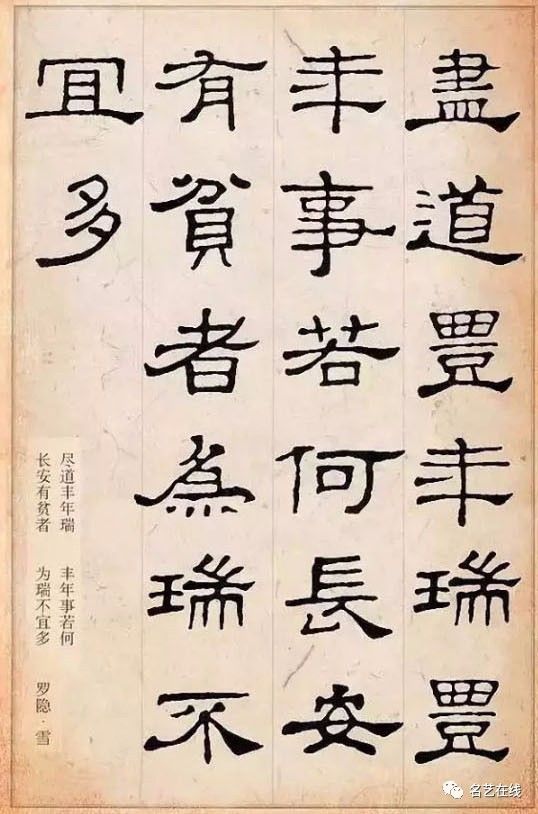 盡道豐年瑞豐
年事若何長安
有貧者為瑞不
宜多
尽道丰年瑞 丰年事若何
长安有贫者 为瑞不宜多 罗隐·雪
名艺在线